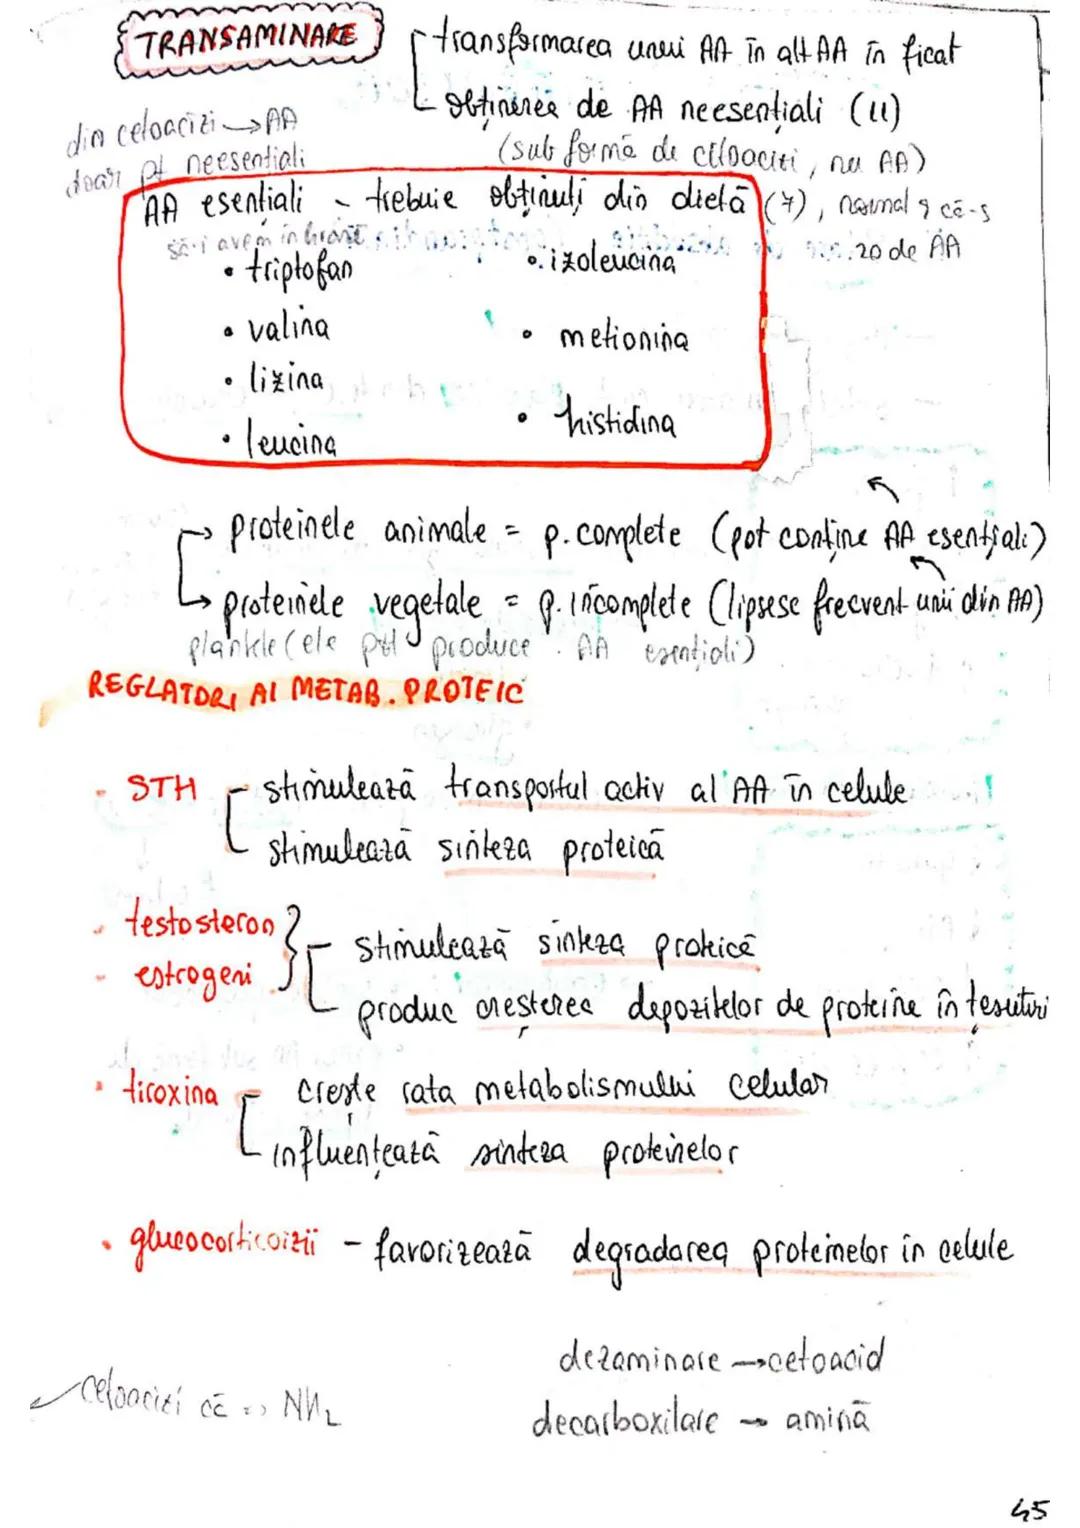 TRANSAMINARE
transformarea unui AA în alt AA în ficat
obținerea de AA neesențiali (11)
din cetoacizi → AA
doar pt neesentiali
(sub formă de cetoacizi, nu AA)
AA esențiali - trebuie obținuți din dietă (7), normal 9 că-s
să-i avem în hrană
20 de AA
• triptofan
• izoleucina
• valina
• metionina
• lizina
• histidina
• leucina
→ proteinele animale = p. complete (pot conține AA esențiali)
→ proteinele vegetale = p. incomplete (lipsesc frecvent unii din AA)
plantele (ele pot produce AA esențiali)
REGLATORI AI METAB. PROTEIC
• STH
stimulează transportul activ al AA în celule
stimulează sinteza proteică
• testosteron
• estrogeni
stimulează sinteza proteică
produc creșterea depozitelor de proteine în țesuturi
• tiroxina
crește rata metabolismului celular
influențează sinteza proteinelor
• glucocorticoizii - favorizează degradarea proteinelor în celule
dezaminare → cetoacid
cetoacizi că => NH2
decarboxilare → amină
45